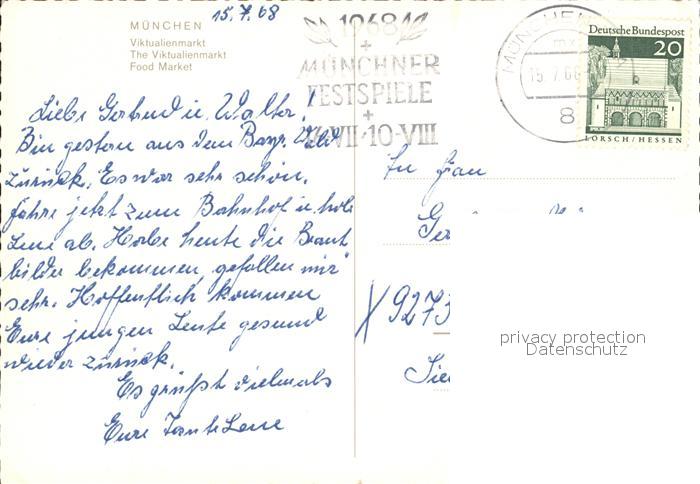 15.7.68
MÜNCHEN
Viktualienmarkt
The Viktualienmarkt
Food Market
Liebe Gertrud u. Walter!
Bin gestern aus dem Bayr. Wald
zurück. Es war sehr schön.
Fahre jetzt zum Bahnhof u. hole
Lene ab. Habe heute die Braut
bilder bekommen, gefallen mir
sehr. Hoffentlich kommen
Eure jungen Leute gesund
wieder zurück.
Es grüßt vielmals
Eure Tante Lene
1968
+
MÜNCHNER
FESTSPIELE
+
VII-10-VIII
MÜNCHEN
15.7.68
8
Deutsche Bundespost
20
LORSCH/HESSEN
Frau
Ger
9273
Sie
privacy protection
Datenschutz